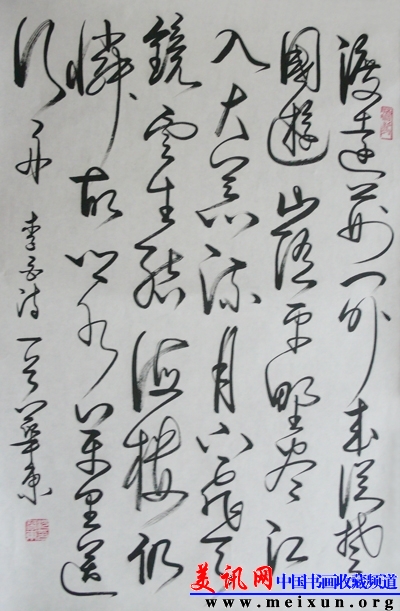 渡遠荆门外来從楚
國遊山随平野尽江
入大荒流月下飛天
鏡雲生結海樓仍
憐故乡水萬里送
行舟 李白诗
美讯网 中国书画收藏频道
www.meixun.org